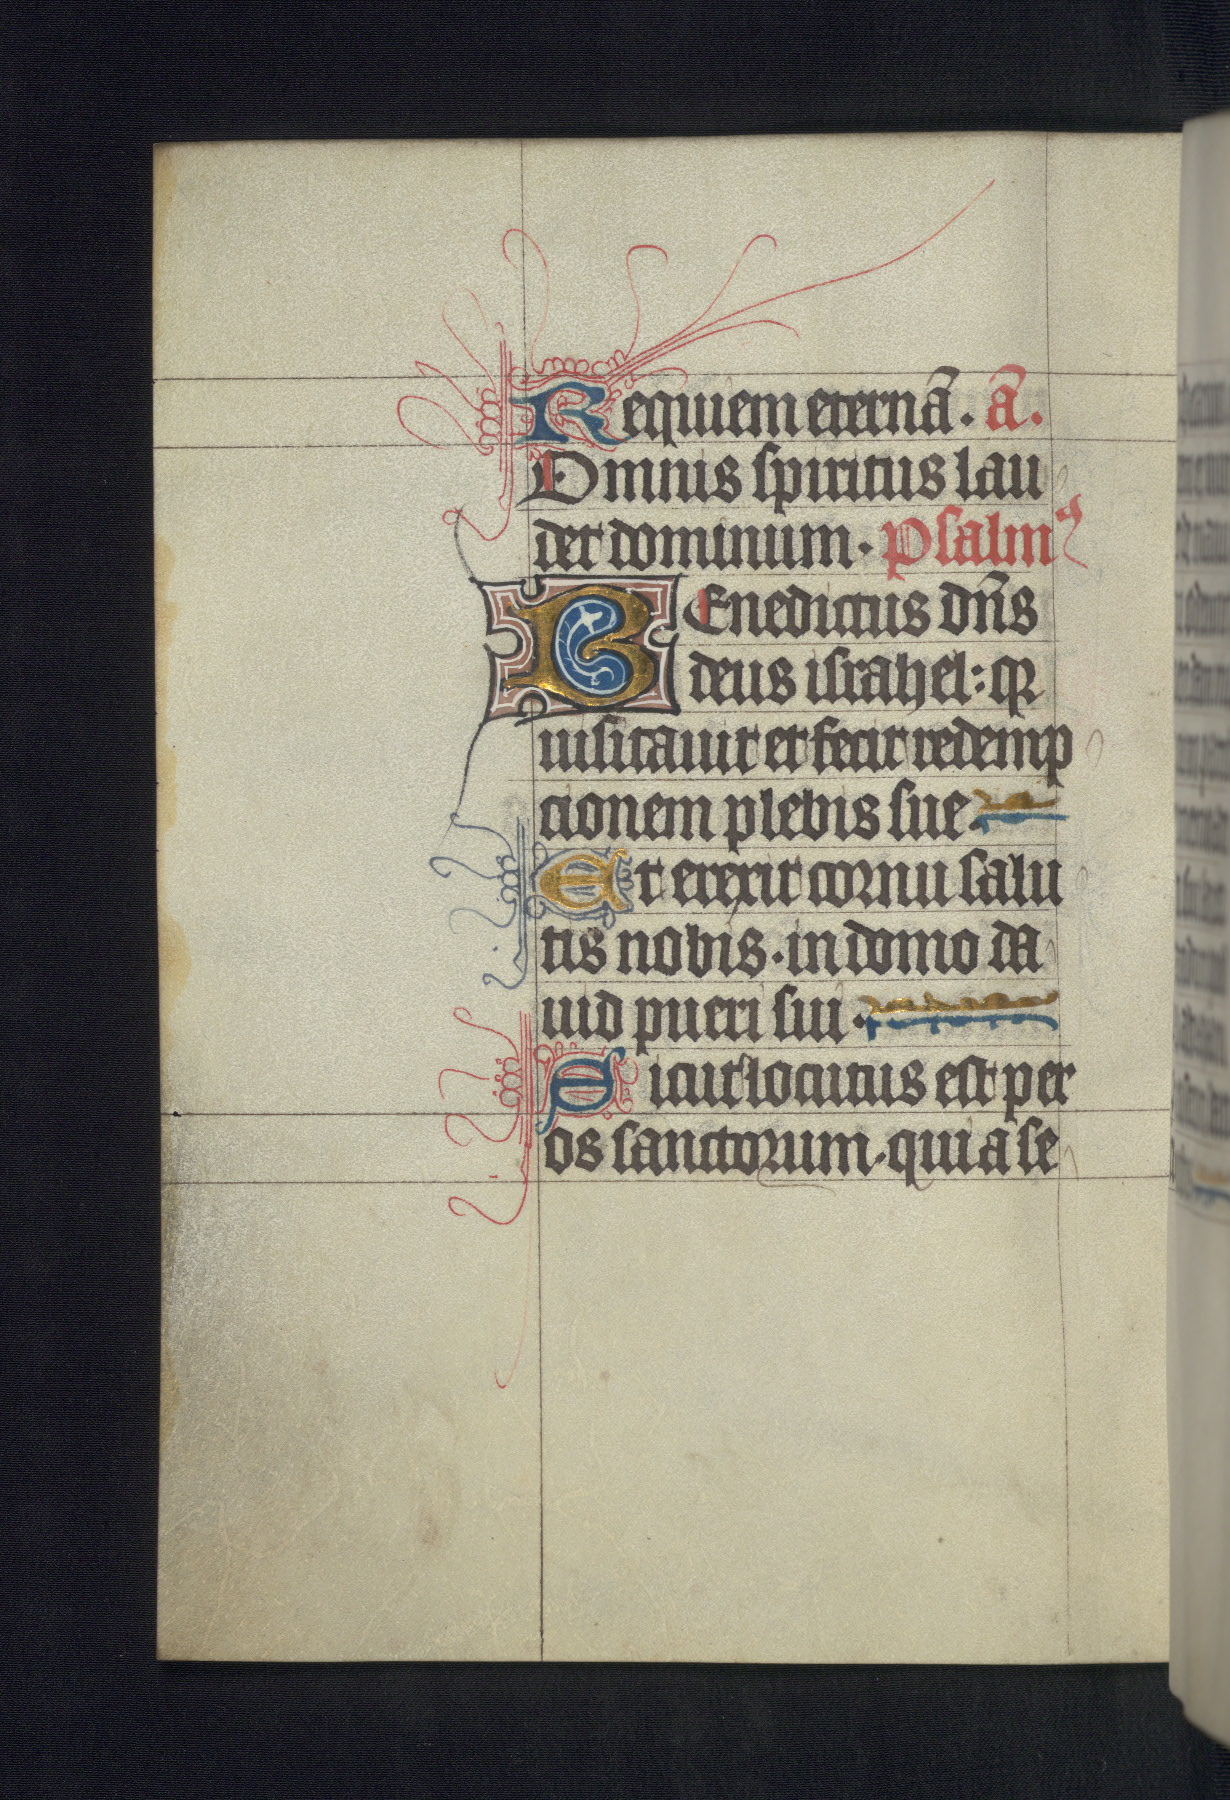 Requiem eternā. ā.
Omnis spiritus lau
det dominum. Psalmꝰ
BEnedictus dn̄s
deus israhel: qr
uisitauit et fecit redemp
cionem plebis sue.
Et erexit cornu salu
tis nobis. in domo da
uid pueri sui.
Sicut locutus est per
os sanctorum. qui a se